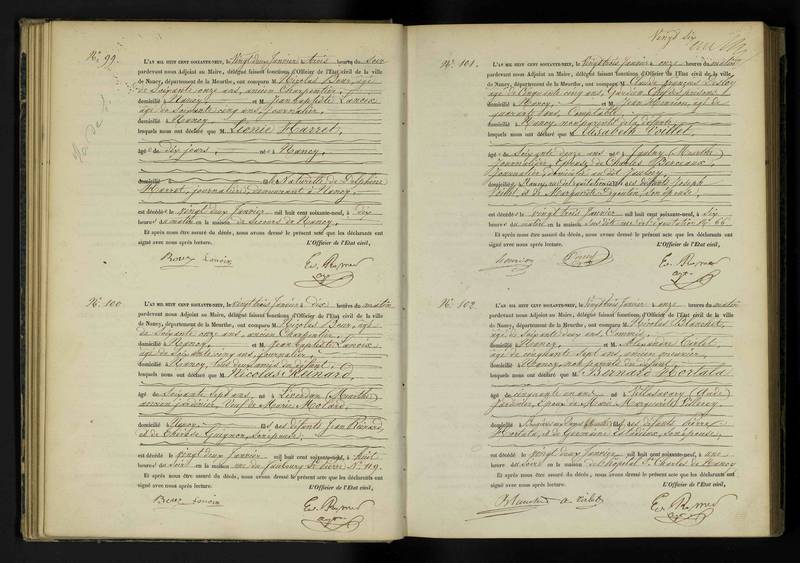 N° 99.
L'AN MIL HUIT CENT SOIXANTE-NEUF, le Vingt deux Janvier à trois heures du Soir
pardevant nous Adjoint au Maire, délégué faisant fonctions d'Officier de l'Etat civil de la ville
de Nancy, département de la Meurthe, ont comparu M. Nicolas Bour, âgé
de Soixante onze ans, ancien Charpentier,
domicilié à Nancy, et M. Jean Baptiste Lanoix
âgé de Soixante cinq ans, journalier,
domicilié à Nancy
lesquels nous ont déclaré que Léonie Harret,
âgé de Dix jours, né à Nancy,
domicilié fille Naturelle de Delphine
Harret, journalière, demeurant à Nancy,
est décédé le vingt deux Janvier mil huit cent soixante-neuf, à Dix
heures du matin en la maison de secours de Nancy.
Et après nous être assuré du décès, nous avons dressé le présent acte que les déclarants ont
signé avec nous après lecture. L'Officier de l'Etat civil,
Bour Lanoix
N° 100
L'AN MIL HUIT CENT SOIXANTE-NEUF, le Vingt trois Janvier à dix heures du matin
pardevant nous Adjoint au Maire, délégué faisant fonctions d'Officier de l'Etat civil de la ville
de Nancy, département de la Meurthe, ont comparu M. Nicolas Bour, âgé
de Soixante onze ans, ancien Charpentier,
domicilié à Nancy, et M. Jean Baptiste Lanoix
âgé de Soixante cinq ans, journalier,
domicilié à Nancy, tous deux amis du défunt,
lesquels nous ont déclaré que Nicolas Renard,
âgé de Soixante Sept ans, né à Liverdun (Meurthe)
ancien jardinier, Veuf de Marie
domicilié à Nancy, fils des défunts Jean Renard,
et de Thérèse Guignon, son épouse;
est décédé le vingt deux Janvier mil huit cent soixante-neuf, à huit
heures du Soir en la maison rue du faubourg St Pierre N° 119.
Et après nous être assuré du décès, nous avons dressé le présent acte que les déclarants ont
signé avec nous après lecture. L'Officier de l'Etat civil,
Bour Lanoix
Vingt Six
N° 101.
L'AN MIL HUIT CENT SOIXANTE-NEUF, le Vingt trois Janvier à onze heures du matin
pardevant nous Adjoint au Maire, délégué faisant fonctions d'Officier de l'Etat civil de la ville
de Nancy, département de la Meurthe, ont comparu M. Claude François
âgé de Cinquante cinq ans, Gardien
domicilié à Nancy, et M. Jean Henrion, âgé de
quarante ans, Comptable,
domicilié à Nancy, non parents de la défunte,
lesquels nous ont déclaré que Elisabeth
âgé de Soixante douze ans née à Faulx (Meurthe)
journalière, épouse de Charles
journalier, domicilié au dit Faulx,
domicilié à Nancy, fille des défunts Joseph
et de Marguerite son épouse,
est décédé le vingt trois Janvier mil huit cent soixante-neuf, à Six
heures du matin en la maison
Et après nous être assuré du décès, nous avons dressé le présent acte que les déclarants ont
signé avec nous après lecture. L'Officier de l'Etat civil,
Henrion
N° 102
L'AN MIL HUIT CENT SOIXANTE-NEUF, le Vingt trois Janvier à onze heures du matin
pardevant nous Adjoint au Maire, délégué faisant fonctions d'Officier de l'Etat civil de la ville
de Nancy, département de la Meurthe, ont comparu M. Nicolas Blanchet,
âgé de Soixante deux ans, Commis,
domicilié à Nancy, et M. Alexandre
âgé de cinquante Sept ans, ancien
domicilié à Nancy, non parents du défunt,
lesquels nous ont déclaré que Bernard Hortala
âgé de cinquante un ans né à Villasavary (Aude)
jardinier, époux de Marie Marguerite
domicilié à fils des défunts Pierre
Hortala, et de Germaine son épouse;
est décédé le vingt deux Janvier mil huit cent soixante-neuf, à une
heure du Soir en la maison de l'hôpital St Charles de Nancy
Et après nous être assuré du décès, nous avons dressé le présent acte que les déclarants ont
signé avec nous après lecture. L'Officier de l'Etat civil,
Blanchet